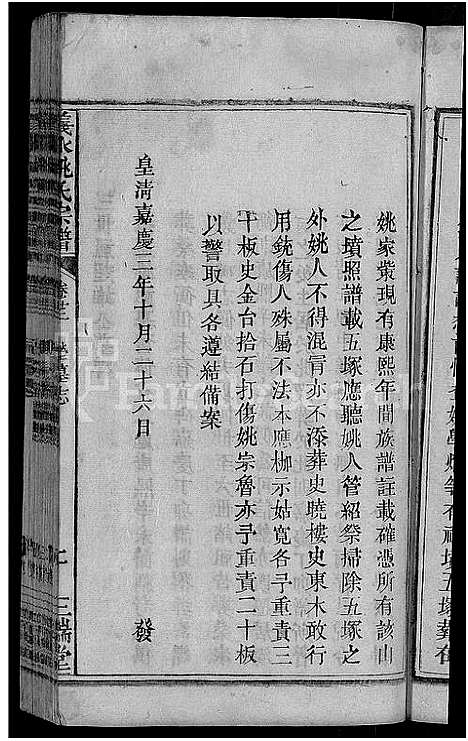 姚家業現有康熙年間族譜註載確憑所有該山
之墳照譜載五塚應聽姚人管紹祭掃除五塚之
外姚人不得混冐亦不添葬史曉樓史東木敢行
用銃傷人殊屬不法本應枷示姑寬各予重責三
十板史金台拾石打傷姚宗魯亦予重責二十板
以警取具各遵結備案
皇清嘉慶三年十月二十六日　發
義水姚氏宗譜
墓志
三瑞堂